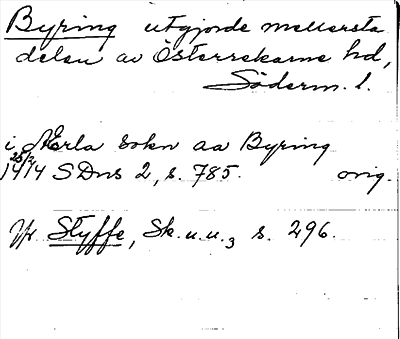 Byring utgjorde mellersta
delen av Österrekarne hd,
Söderm. l.
i Ærla sokn aa Byring
25/2 1414 SDns 2, s. 785. orig.
Jfr Styffe, Sk.u.u.3 s. 296.